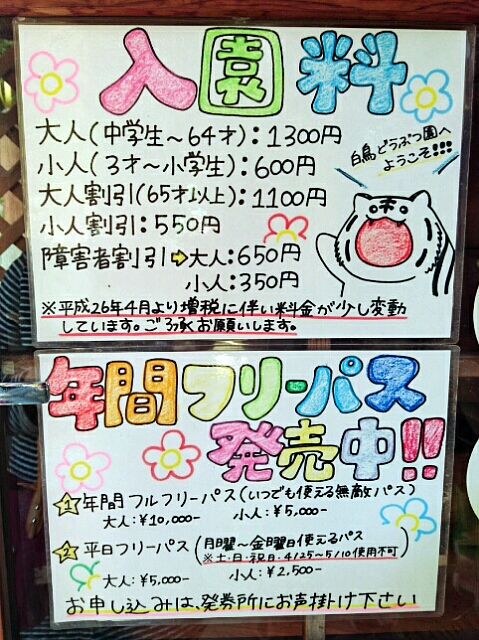 入園料
大人(中学生～64才):1300円
小人(3才～小学生):600円
大人割引(65才以上):1100円
小人割引:550円
障害者割引⇨大人:650円
小人:350円
白鳥どうぶつ園へ
ようこそ!!!
※平成26年4月より増税に伴い料金が少し変動
しています。ご了承お願いします。
年間フリーパス
発売中!!
1 年間フルフリーパス(いつでも使える無敵パス)
大人:¥10,000- 小人:¥5,000-
2 平日フリーパス(月曜～金曜日使えるパス
※土・日・祝日・4/25～5/10使用不可)
大人:¥5,000- 小人:¥2,500-
お申し込みは、発券所にお声掛け下さい